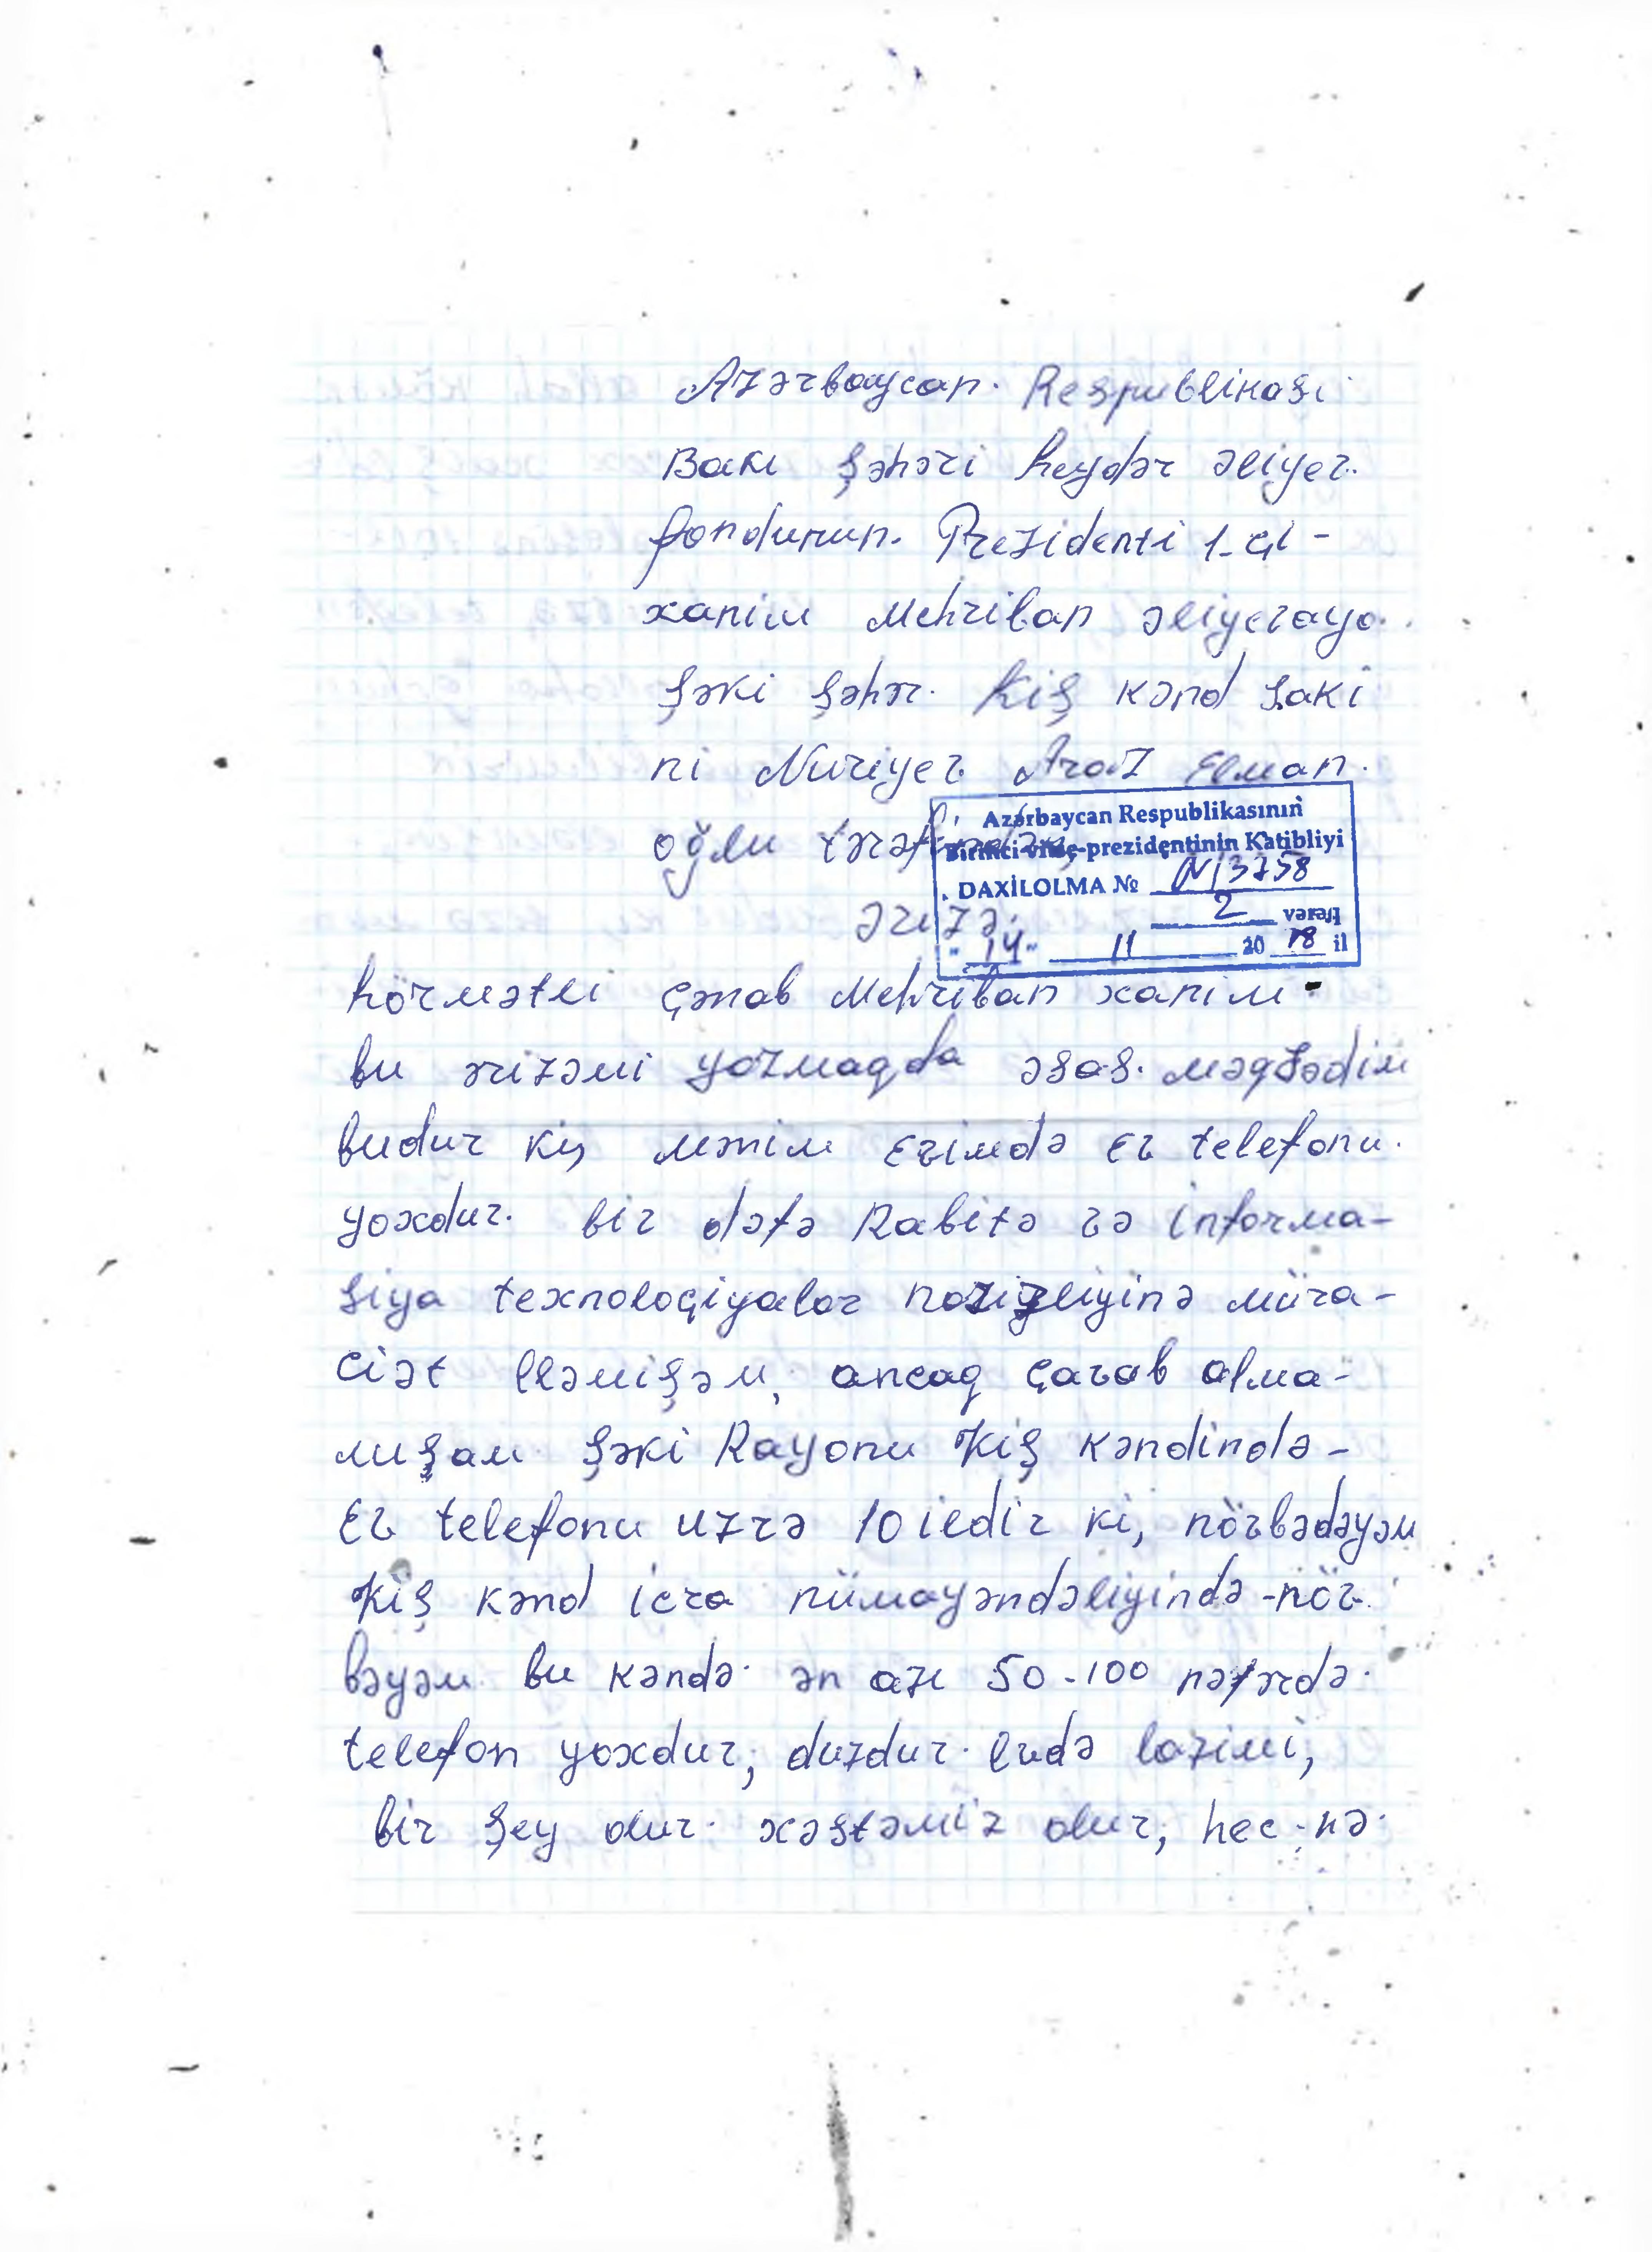 Azərbaycan. Respublikasi
Bakı Şəhəri heydər əliyev.
fondunun. Prezidenti 1-çi-
xanim Mehriban əliyevaya.
Şəki Şəhər. Kiş kənd Saki
ni Nuriyev Araz Elman.
oğlu tərəfindən,
Azərbaycan Respublikasının
Birinci vitse-prezidentinin Katibliyi
DAXİLOLMA № N13758
2 vərəq
"14" 11 2018 il
ərizə.
hörmətli çənab Mehriban xanim.
bu ərizəmi yazmaqda əsas. məqSədim
budur ki, mənim Evimdə Ev telefonu.
yoxdur. bir dəfə Rabitə və informa-
siya texnoloqiyalar naziyliyinə müra-
ciət eləmişəm, ancaq çavab alma-
mışam Şəki Rayonu Kiş kəndində-
Ev telefonu uzrə 10 ildir ki, növbədəyəm
Kiş kənd icra nümayəndəliyində-növ.
bəyəm bu kəndə. ən azı 50-100 nəfərdə.
telefon yoxdur, duzdur. Evdə lazimi,
bir Şey olur. xəstəmiz olur, hec-nə.